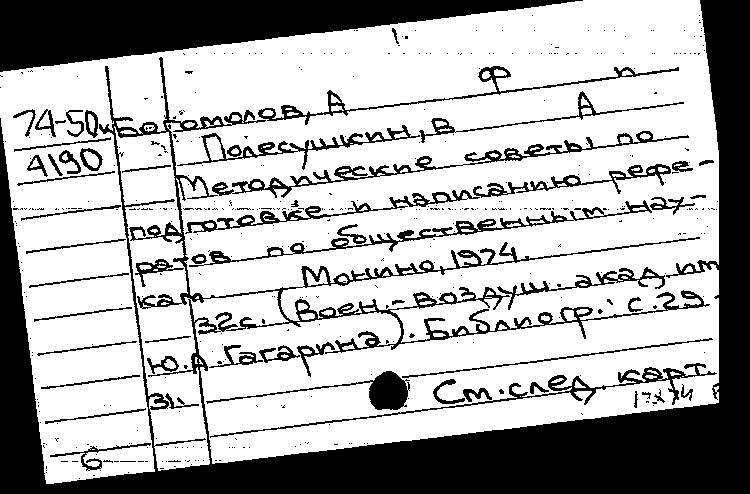 1.
ф п
74-50к Богомолов, А
4190 Полесушкин, В А
Методические советы по
подготовке и написанию рефе-
ратов по общественным нау-
кам. Монино, 1974.
32с. (Воен.-воздуш. акад. им
Ю.А.Гагарина.). Библиогр.: с.29-
31.
См. след. карт.
6